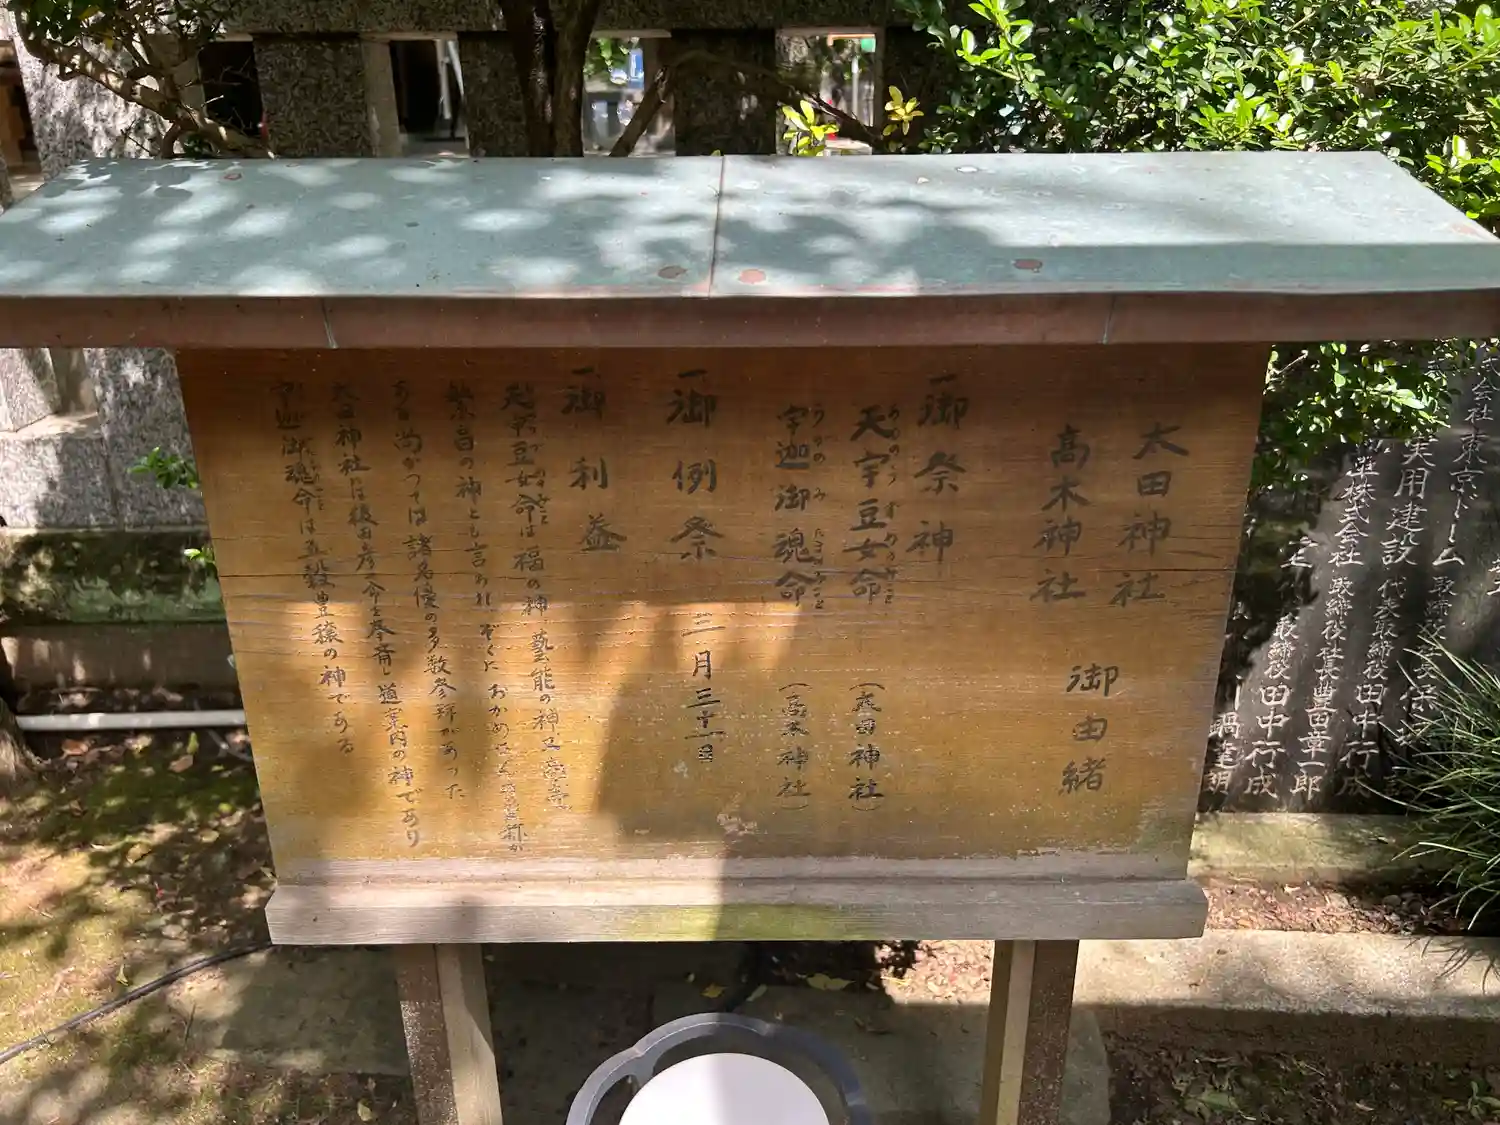 太田神社
高木神社 御由緒
一御祭神
天宇豆女命 (太田神社)
あめのうずめのみこと
宇迦御魂命 (高木神社)
うがのみたまのみこと
一御例祭 三月三十一日
一御利益
天宇豆女命は福の神 藝能の神又
繁昌の神とも言われ ぞくにおかめ
ある 尚かつては諸名優の多数参拝があった
太田神社は猿田彦命を奉斉し道案内の神であり
宇迦御魂命は五穀豊穣の神である
株式会社東京ドーム 取締役
実用建設 代表取締役 田中行成
株式会社 取締役社長 豊田章一郎
取締役 田中行成